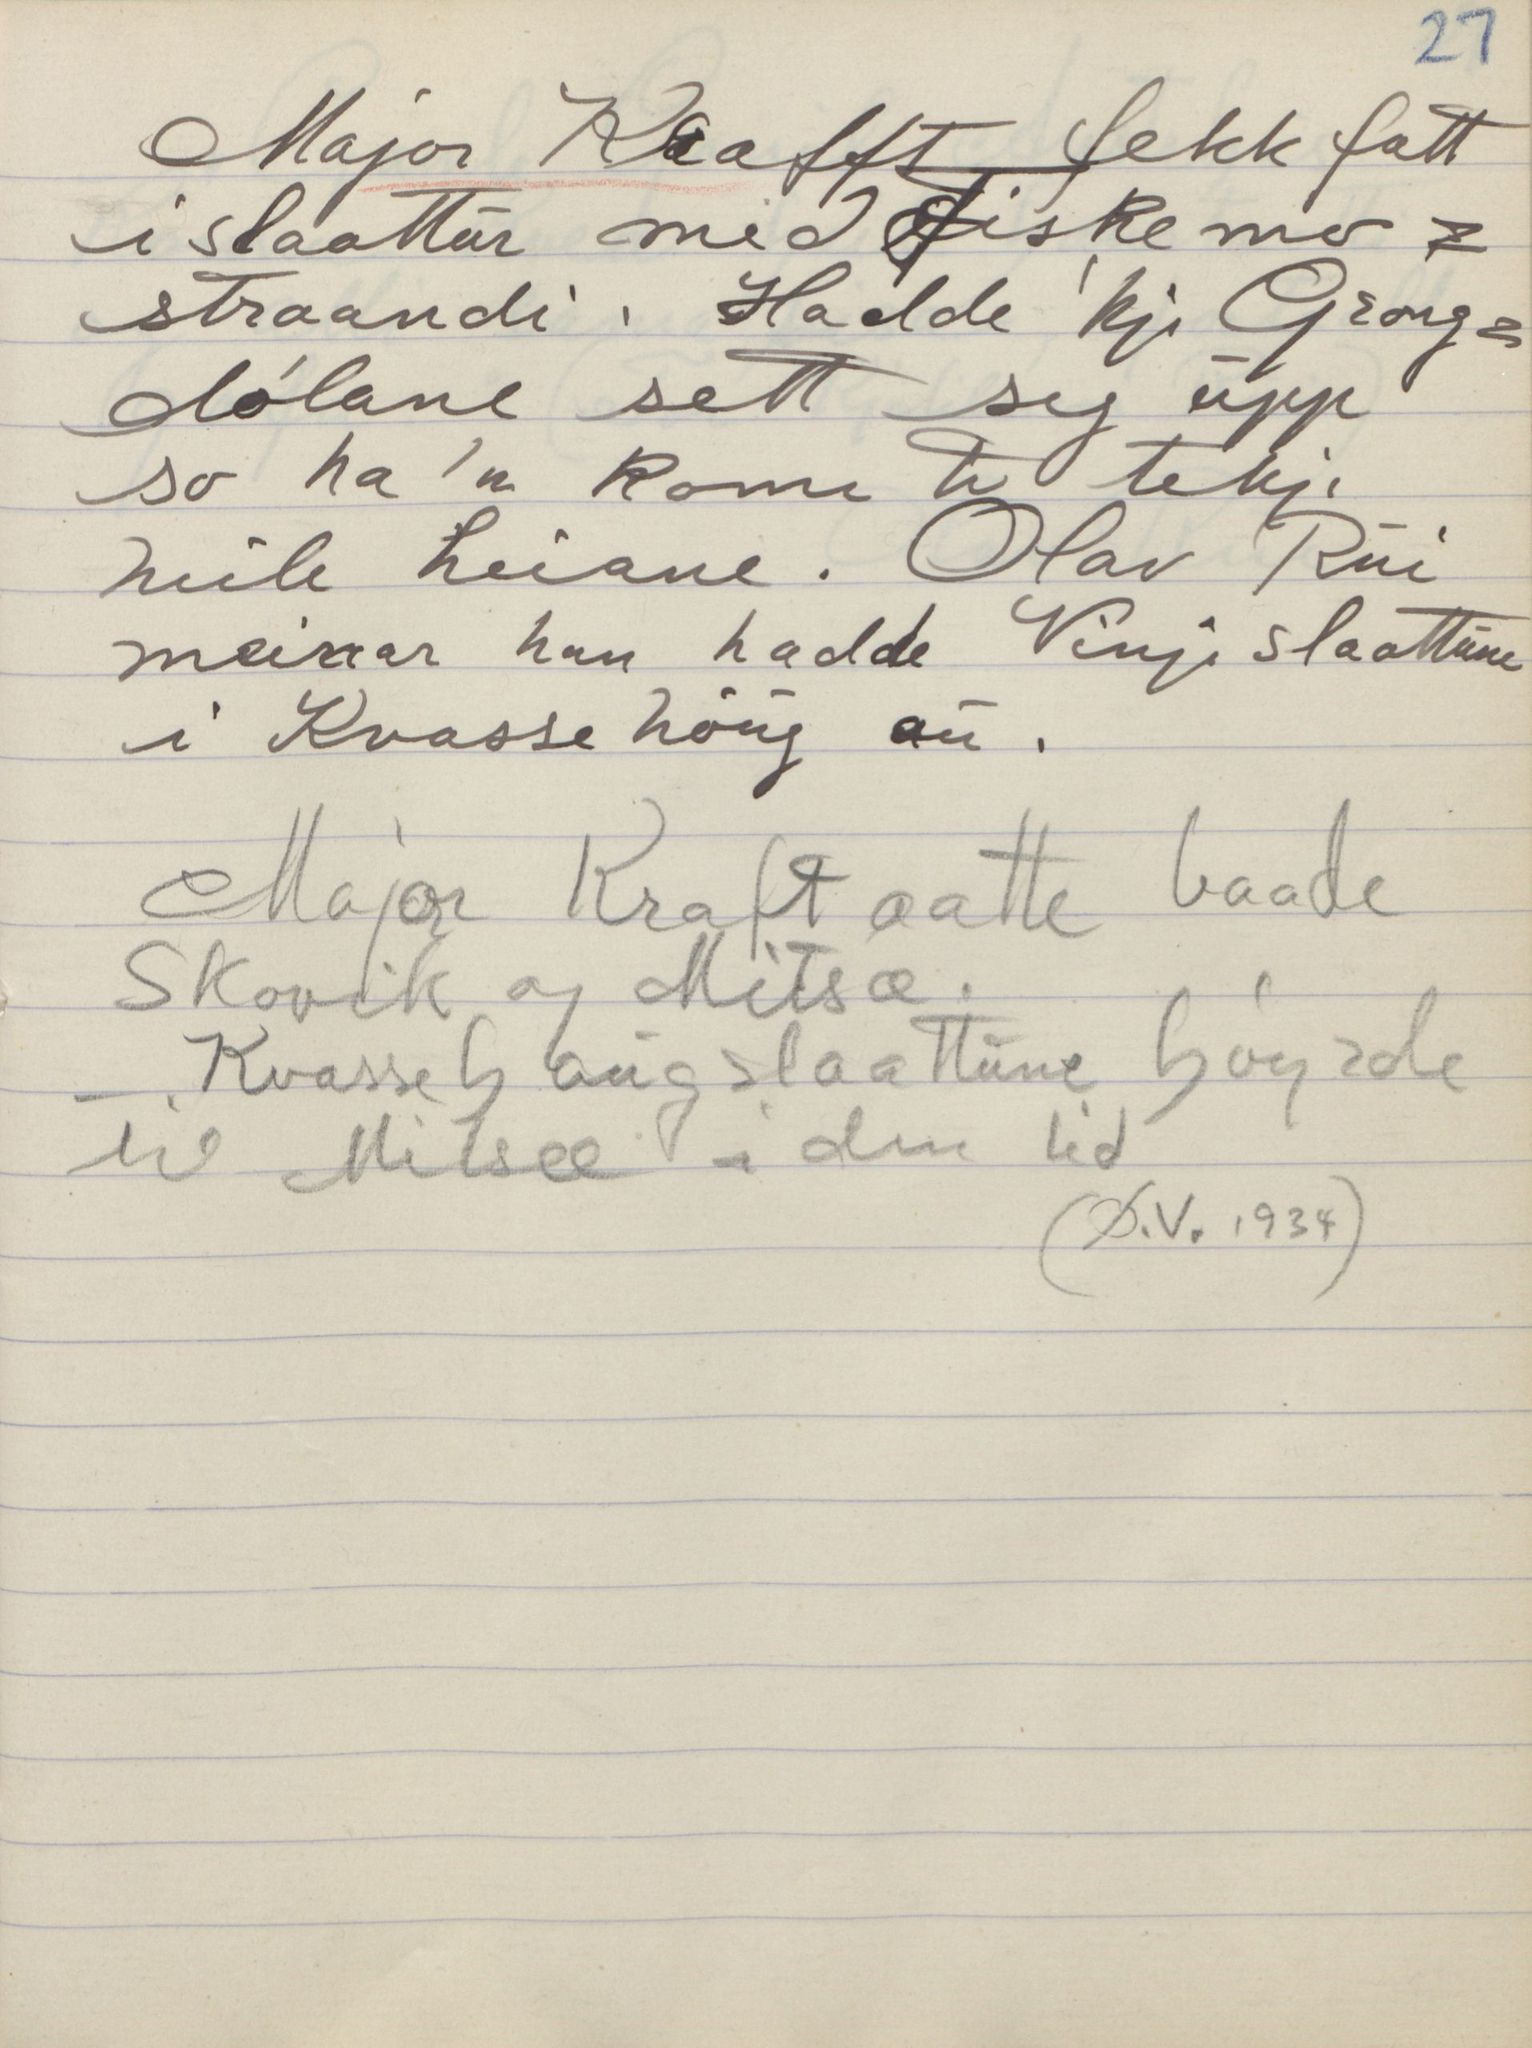 27
Major Krafft fekk fatt
i slaattür med Fiskemo=
straandi. Hadde 'kji Grong=
dólane sett seg üpp
so ha'n kome te tekji
heile heiane. Olav Rüi
meinar han hadde Vinjislaattüne
i Kvassehöüg aü.
Major Kraft aatte baade
Skovik og Mitsæ.
Kvassehaügslaattüne höyrde
til Mitsæ i den tid
(Ø.V. 1934)